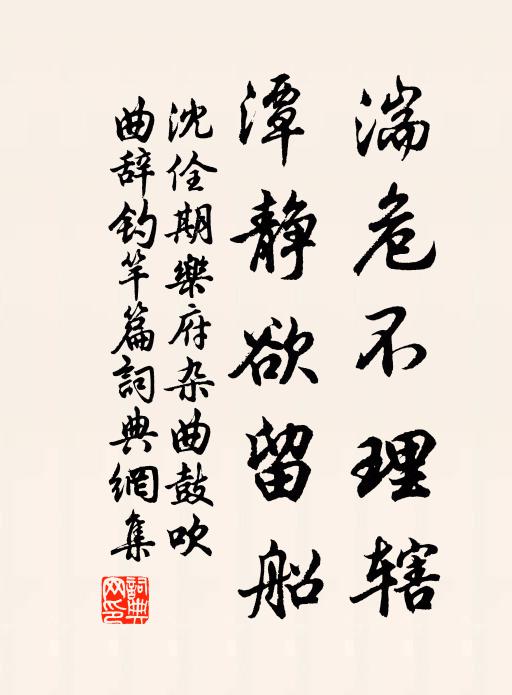 湍危不理辖
潭静欲留船
沈佺期樂府杂曲鼓吹
曲辞钓竿篇詞典網集
詞典网印